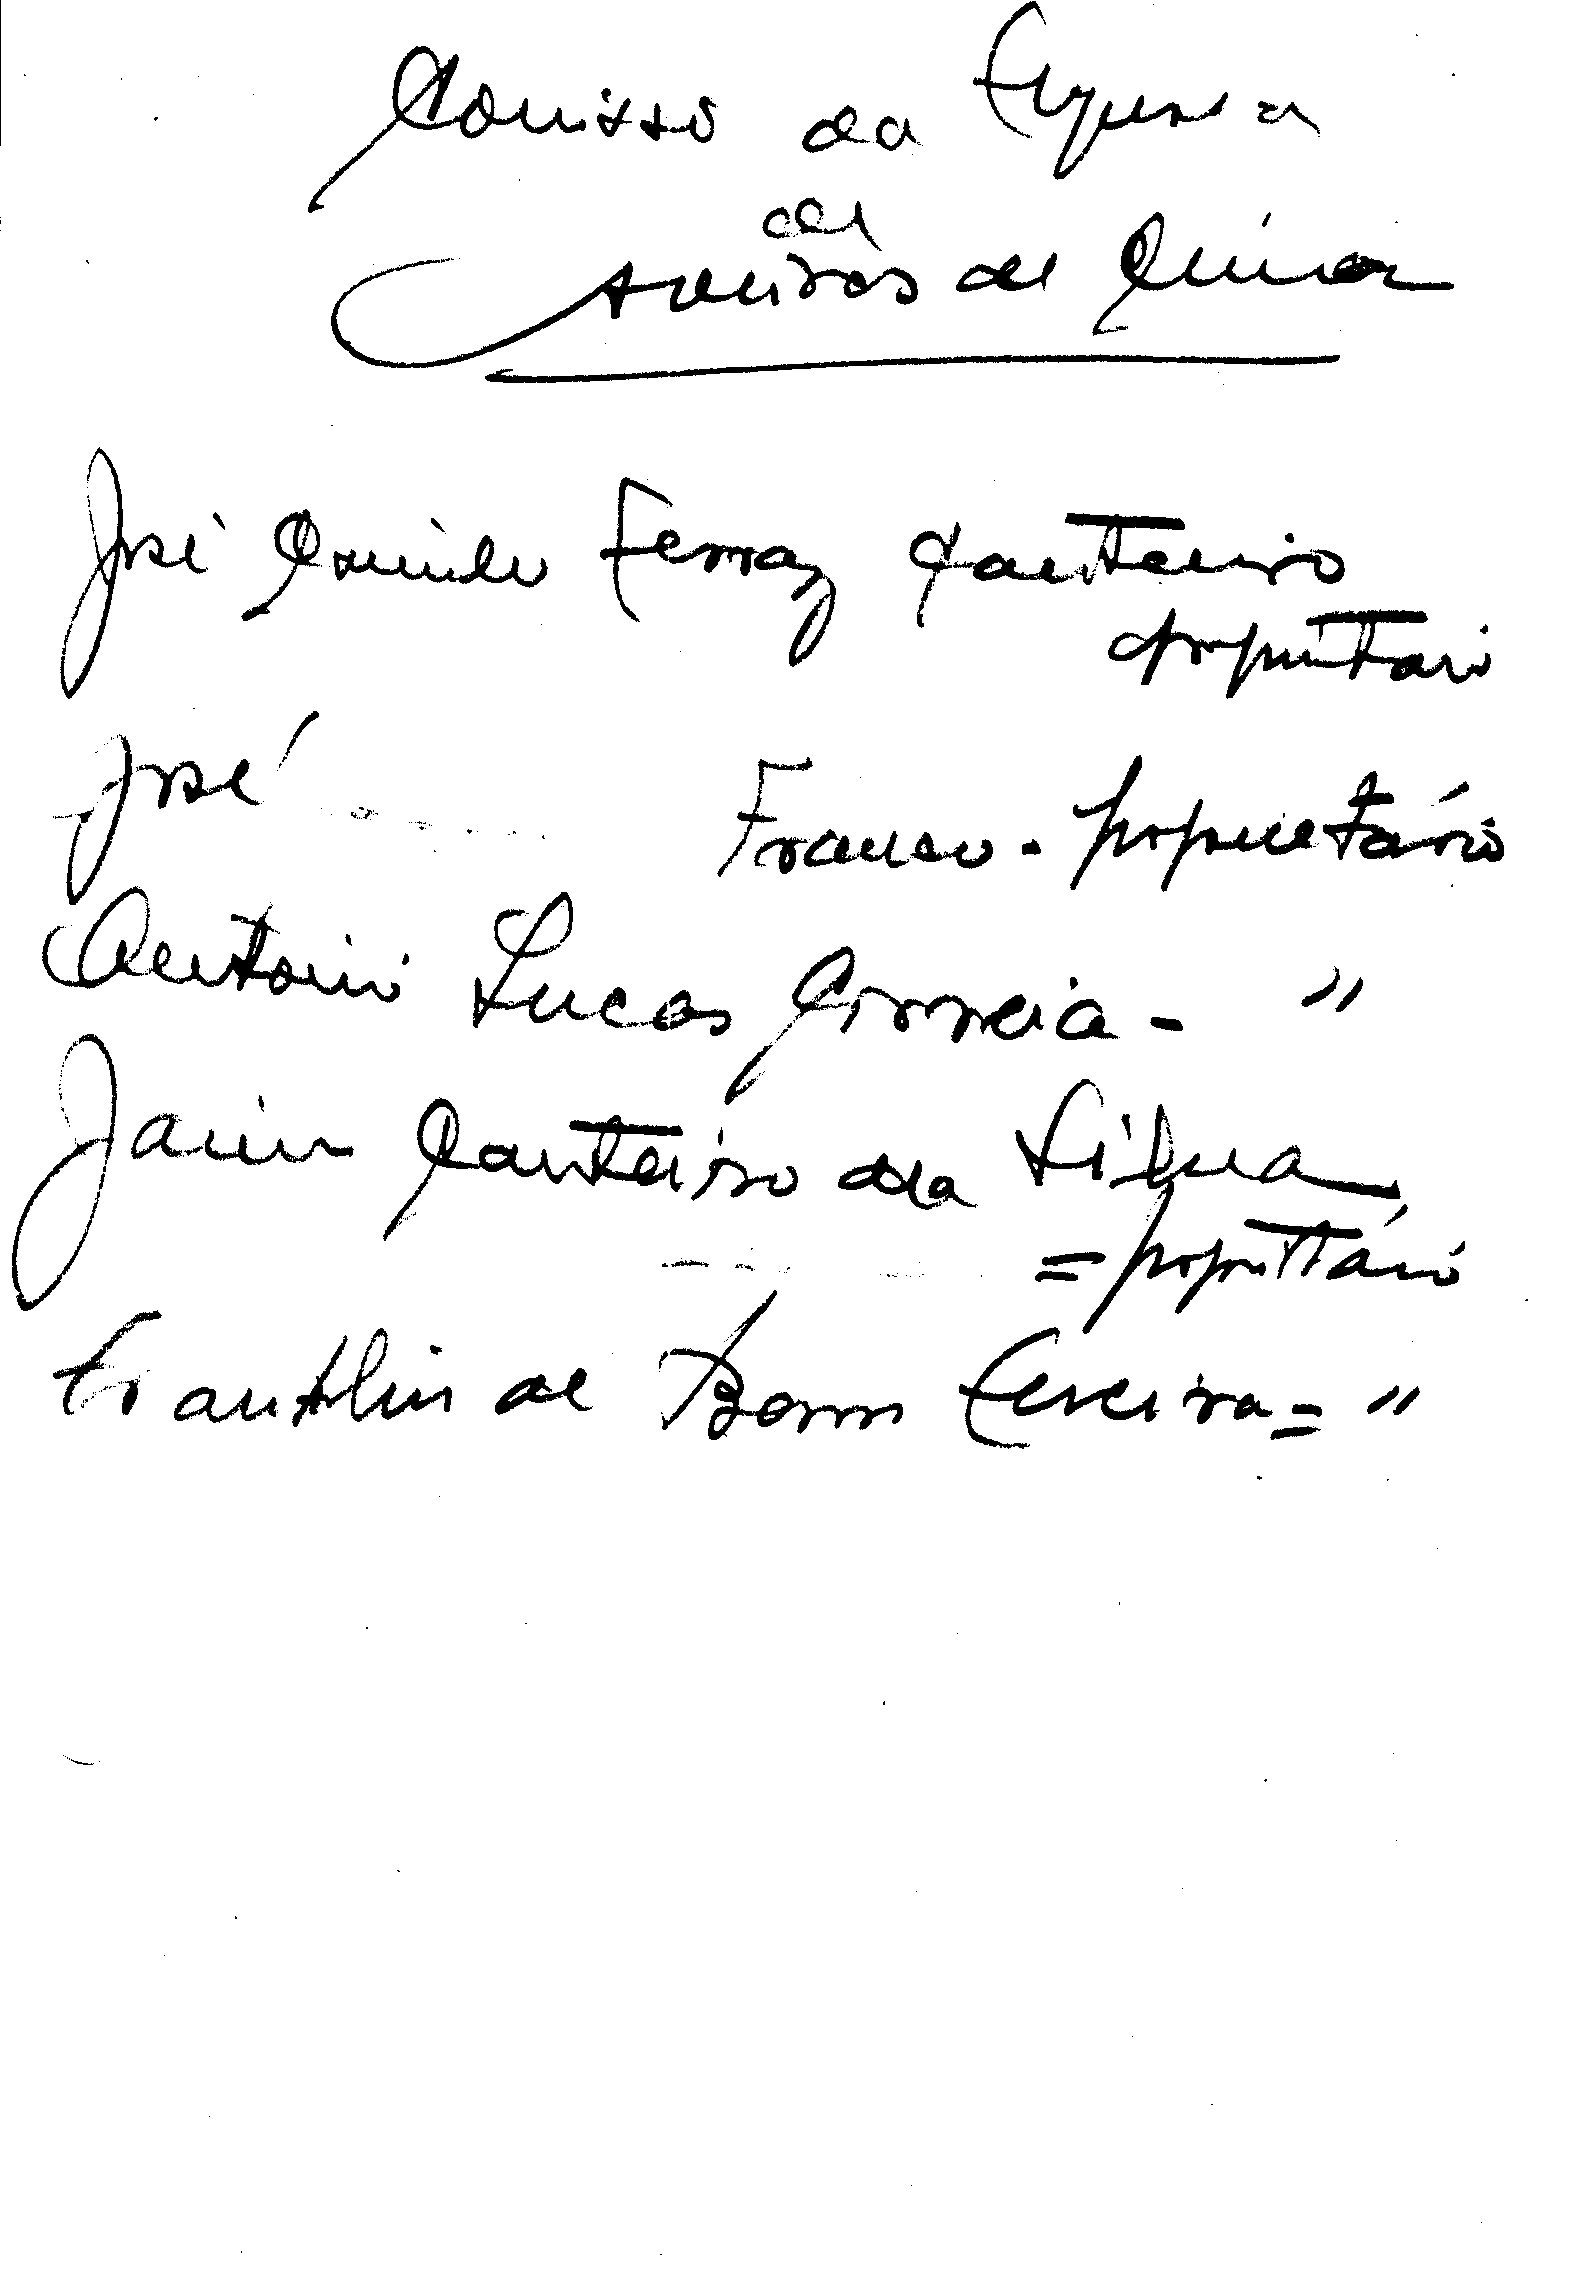 Comissão da Freguesia
de
Aveiras de Cima
José Camilo Ferraz Canteiro
proprietário
José ..... Franco - proprietário
António Lucas Correia - "
Jaime Canteiro da Silva
= proprietário
Franklin de Bom Ferreira = "